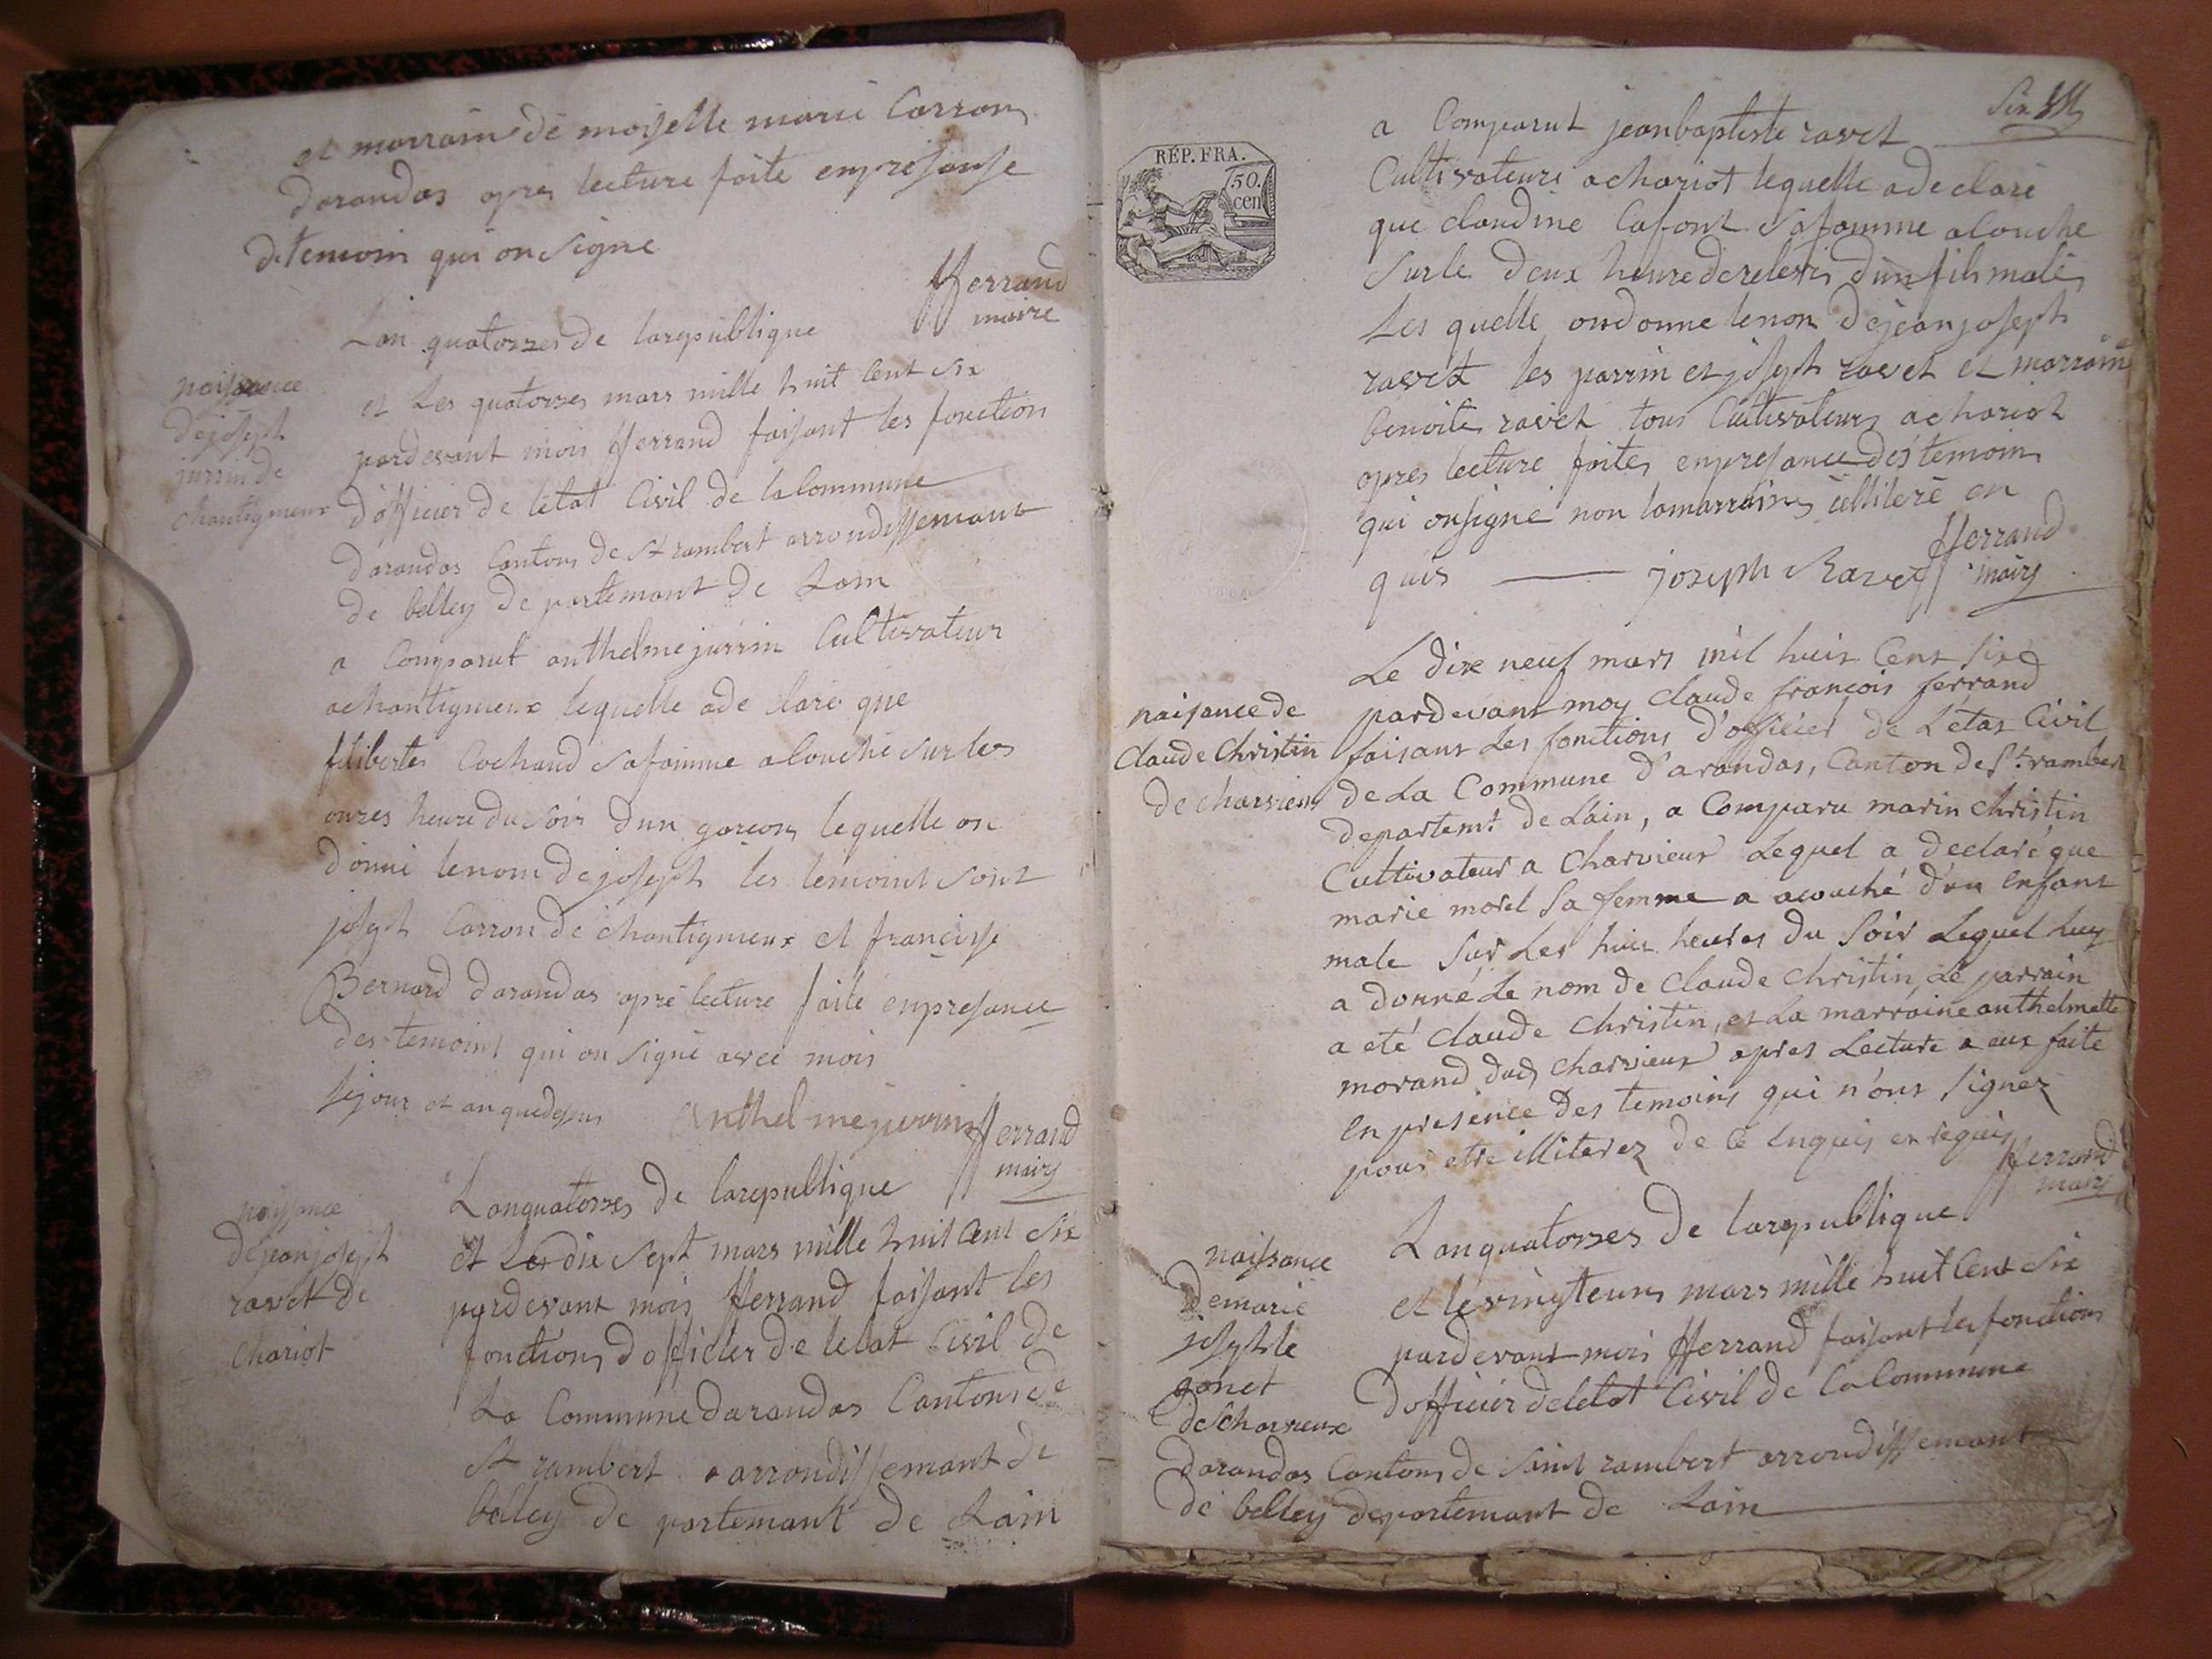 et marrain de moiselle marie Carron
darandas apres lecture faite enpresanse
de temoin qui on signe
fferrand
maire
Lan quatorzes de larepublique
naissance
de joseph
jurrin de
chantigneux
et Les quatorzes mars mille huit cent six
pardevant mois fferrand faisant les fonction
d'officier de letat Civil de la Commune
darandas Cantons de st rambert arrondissemant
de belley de partemant de Lain
a Comparut anthelme jurrin Cultivateur
achantigneux lequelle ade claré que
filiberte Cochand safamme alouche sur les
onzes heure du soir dun garcon lequelle on
donné lenom de joseph les temoint sont
joseph Carron de chantigneux et francoise
Bernard darandas apré lecture faite enpresance
des temoint qui on signé avec mois
sejour et an quedessus
anthelme jurrin fferrand
mairs
naissance
de jean joseph
ravet de
Chariot
Lanquatorzes de larepublique
et Les dix sept mars mille huit cent six
pardevant mois fferrand faisant les
fonctions dofficier de letat Civil de
La Commune darandas Cantons de
st rambert arrondissemant de
belley de partemant de Lain
RÉP. FRA.
50.
cen
Six
a Comparut jeanbaptiste ravet
Cultivateurs achariot lequelle adeclaré
que claudine Lafont Safamme alouche
Surle deux heure derelevés dun fils male
Les quelle ondonne lenon de jeanjoseph
ravet les parrin et joseph ravet et marraine
benoite ravet tous Cultivateurs achariot
apres lecture faites enpresance des temoins
qui onsigné non lamarraines illiteré en
quis
joseph Ravet fferrand
mairs
naisance de
Claude Christin
de charvieux
Le dix neuf mars mil huit Cent six
pardevant moy claude françois ferrand
faisant Les fonctions d'officier de L'etat Civil
de La Commune d'arandas, Canton de St. rambert
departemt de Lain, a Comparu marin christin
Cultivateur a Charvieux Lequel a declaré que
marie morel sa femme a acouché d'un enfant
male Sur Les huit heures du Soir Lequel Luy
a donné Le nom de Claude Christin, Le parrain
a eté Claude Christin, et La marraine anthelmette
morand dud charvieux apres Lecture a eux faite
en presence Des temoins qui n'ont signez
pour etre illiterez de ce enquis et requis
fferrand
mairs
naissance
de marie
josephte
gonet
de Charvieux
Lanquatorzes de larepublique
et le vingteuns mars mille huit Cent six
pardevant mois fferrand faisant les fonctions
dofficier deletat Civil de la Commune
darandas Cantons de saint rambert arrondissemant
de belley departemant de Lain